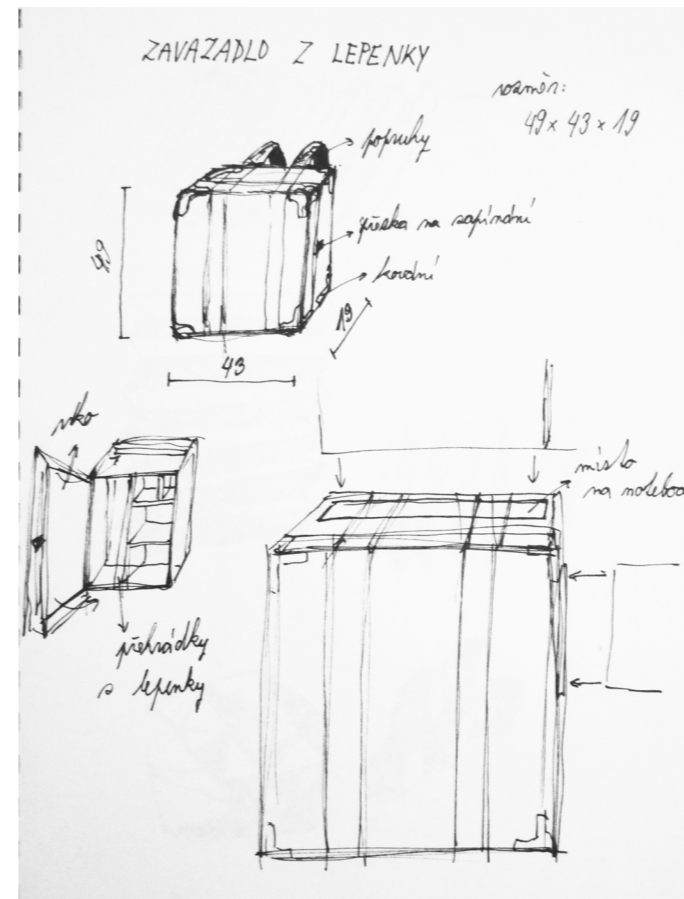 ZAVAZADLO Z LEPENKY
rozměr:
49 x 43 x 19
popruhy
přezka na zapínání
kování
49
19
43
víko
místo
na noteboo
přehrádky
z lepenky